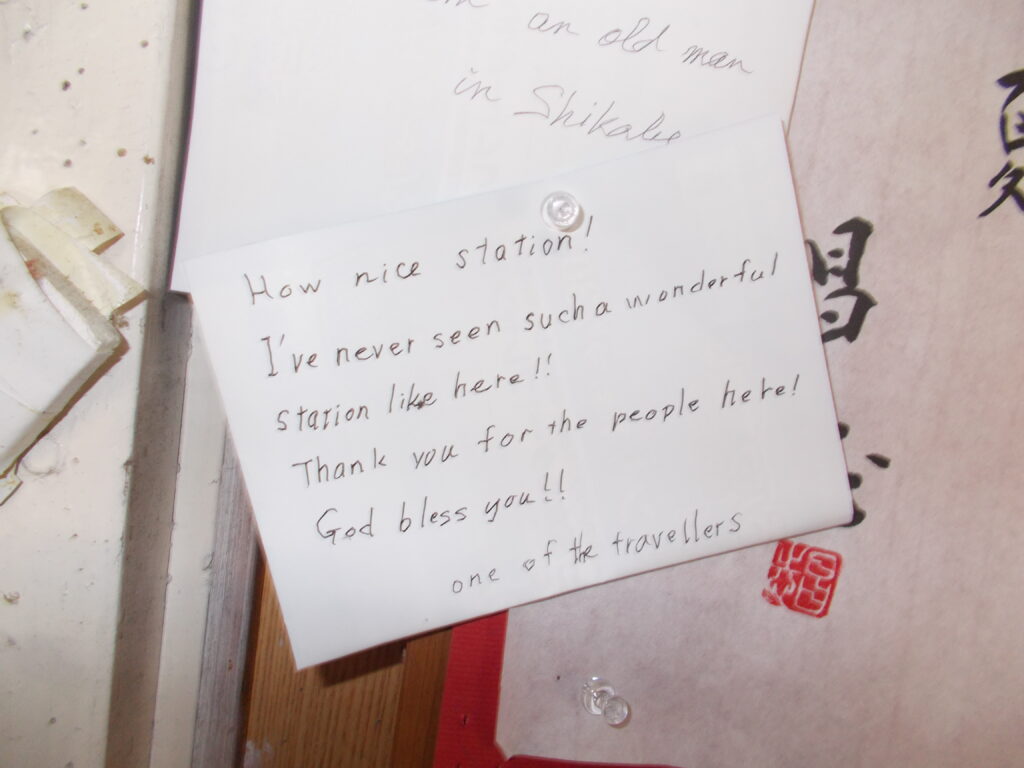 an old man
in Shikabe
How nice station!
I've never seen such a wonderful
station like here!!
Thank you for the people here!
God bless you!!
one of the travellers